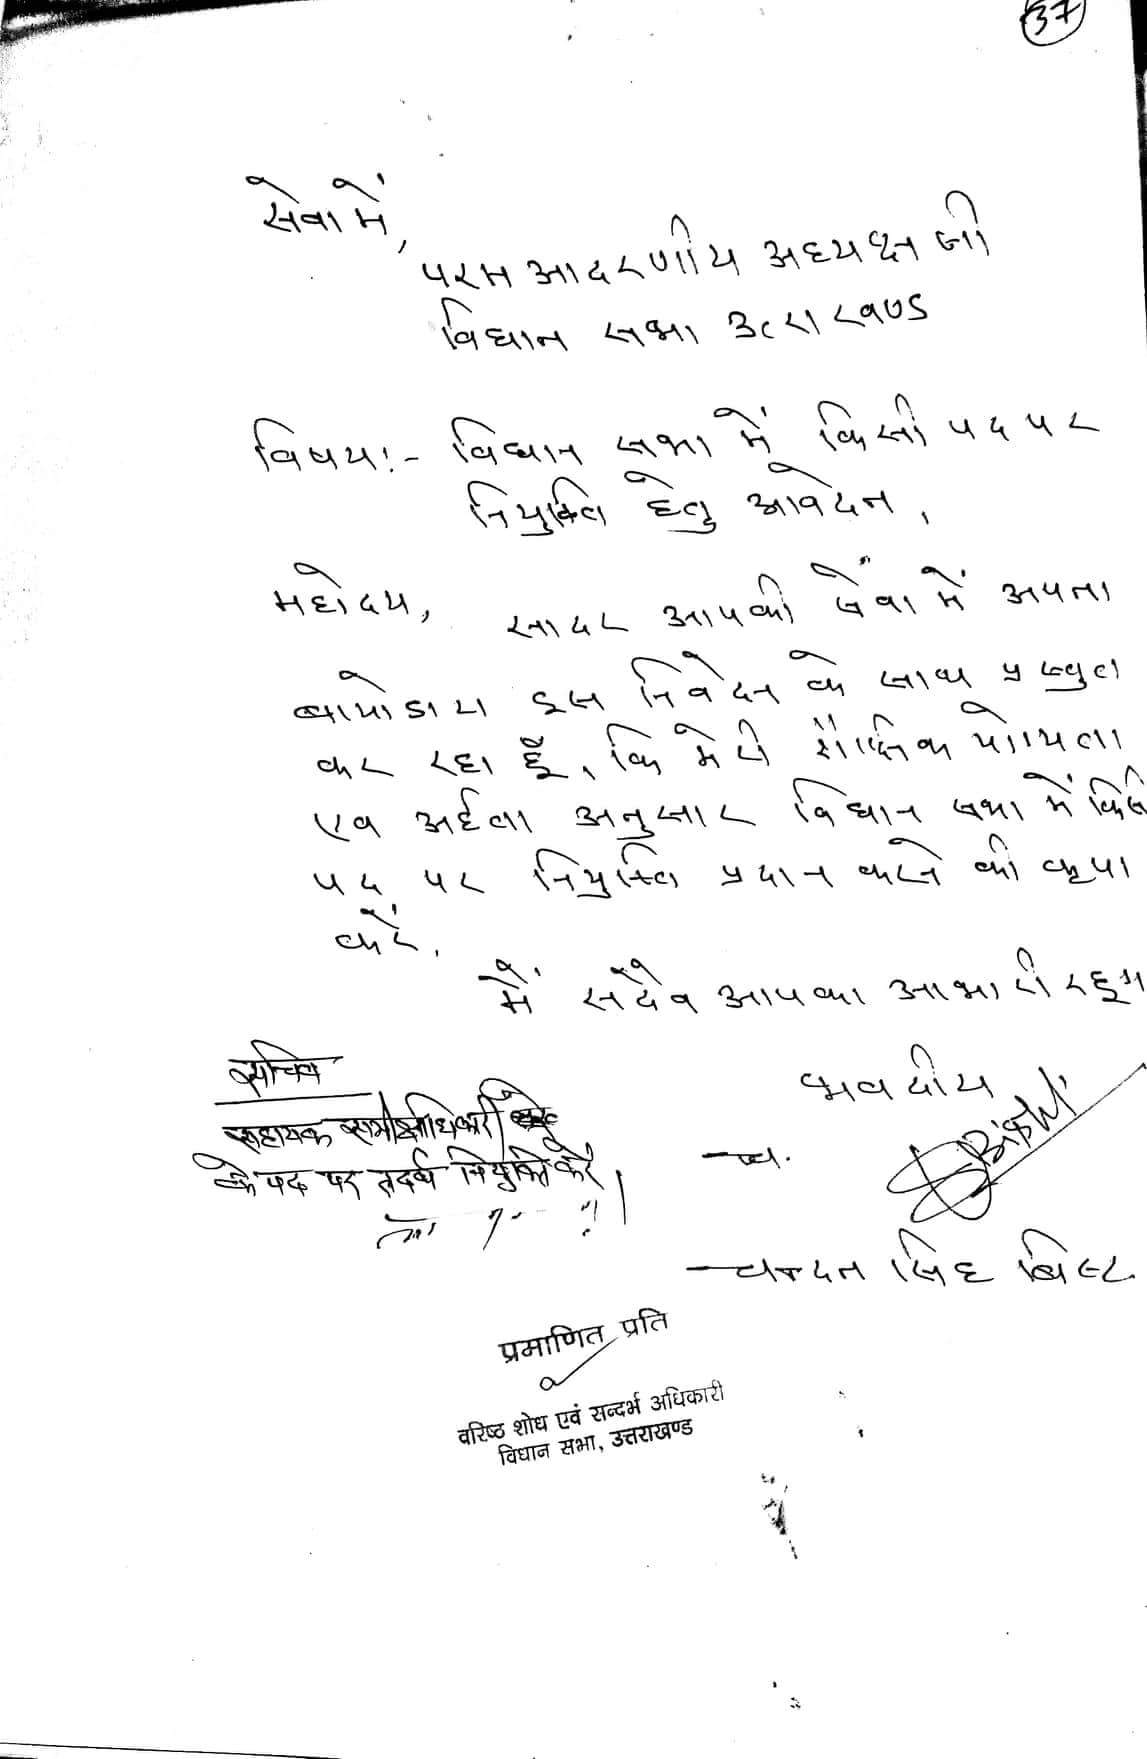 37
सेवा में,
परम आदरणीय अध्यक्ष जी
विधान सभा उत्तराखण्ड
विषयः- विधान सभा में किसी पद पर
नियुक्ति हेतु आवेदन,
महोदय, सादर आपकी सेवा में अपना
बायोडाटा इस निवेदन के साथ प्रस्तुत
कर रहा हूँ, कि मेरी शैक्षिक योग्यता
एव अर्हता अनुसार विधान सभा में किसी
पद पर नियुक्ति प्रदान करने की कृपा
करें,
मैं सदैव आपका आभारी रहूगा
भवदीय
सचिव
सहायक समीक्षाधिकारी
के पद पर तदर्थ नियुक्ति करें
Bisht
चन्दन सिंह बिष्ट
प्रमाणित प्रति
वरिष्ठ शोध एवं सन्दर्भ अधिकारी
विधान सभा, उत्तराखण्ड